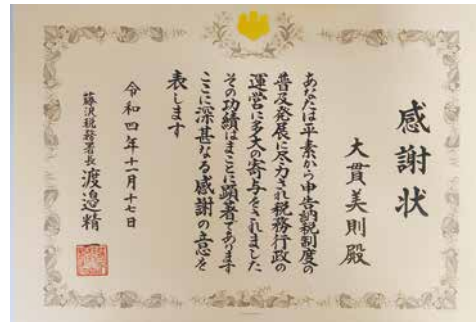 感謝状
大貫美則殿
あなたは平素から申告納税制度の
普及発展に尽力され税務行政の
運営に多大の寄与をされました
その功績はまことに顕著であります
ここに深甚なる感謝の意を
表します
令和四年十一月十七日
藤沢税務署長 渡邉精